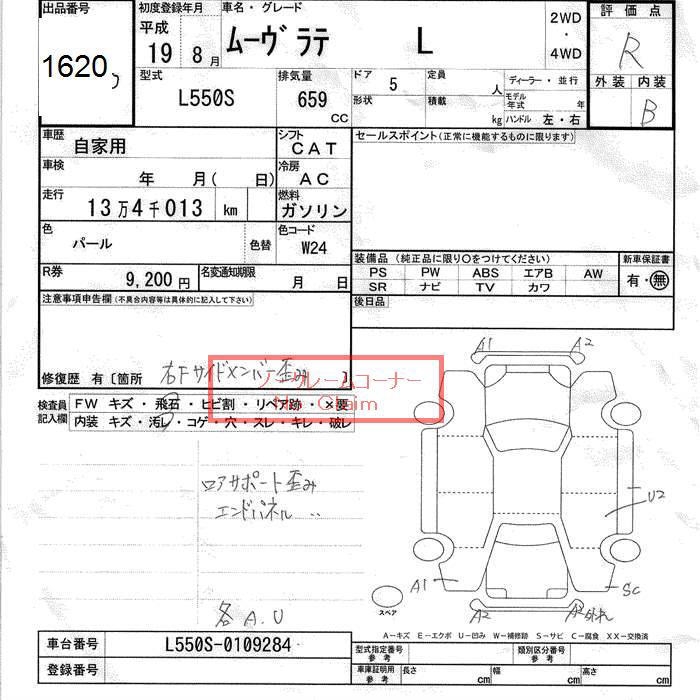 出品番号
1620
初度登録年月
平成
19 8月
車名・グレード
ムーヴ ラテ L
2WD
・
4WD
評価点
R
外装 内装
B
型式
L550S
排気量
659
CC
ドア
5
定員
人
形状
積載
kg
ディーラー・並行
モデル
年式 年
ハンドル 左・右
車歴
自家用
シフト
CAT
セールスポイント(正常に機能するものに限ります)
車検
年 月( 日)
冷房
AC
走行
13万4千013 km
燃料
ガソリン
色
パール
色替
色コード
W24
装備品(純正品に限り○をつけてください)
PS PW ABS エアB AW
SR ナビ TV カワ
新車保証書
有・無
R券
9,200円
名変通知期限
月 日
後日品
注意事項申告欄(不具合内容等は具体的に記入して下さい)
修復歴 有〔箇所 右Fサイドメンバー歪み 〕
ノークレームコーナー
No Claim
検査員
記入欄
FW キズ・飛石・ヒビ割・リペア跡・×要
内装 キズ・汚レ・コゲ・穴・スレ・キレ・破レ
ロアサポート歪み
エンドパネル 〃
各A.U
A1
A2
U2
A1
SC
A2
A2
スペア
A−キズ E−エクボ U−凹み W−補修跡 S−サビ C−腐食 XX−交換済
車台番号
L550S-0109284
登録番号
型式指定番号
参考
類別区分番号
参考
車庫証明用
参考
長さ cm
幅 cm
高さ cm